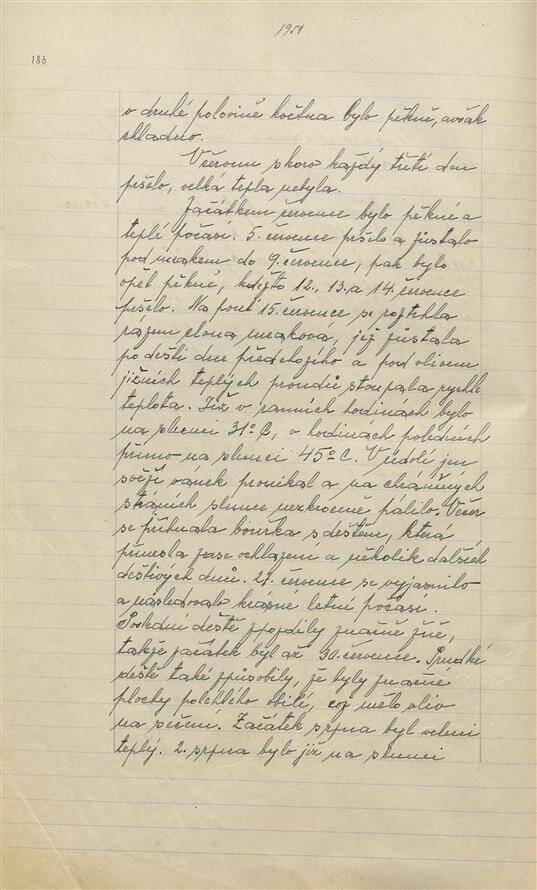 1951
183
v druhé polovině května bylo pěkně, avšak
chladno.
V červnu skoro každý třetí den
pršelo, velká tepla nebyla.
Začátkem července bylo pěkné a
teplé počasí. 5. července pršelo a zůstalo
pod mrakem do 9. července, pak bylo
opět pěkně, kdežto 12., 13. a 14. července
pršelo. Na pouť 15. července se roztrhla
rázem clona mraková, jež zůstala
po dešti dne předešlého a pod vlivem
jižních teplých proudů stoupala rychle
teplota. Již v ranních hodinách bylo
na slunci 31° C, v hodinách poledních
přímo na slunci 45° C. V údolí jen
svěží vánek pronikal a na chráněných
stráních slunce nezkrocně pálilo. Večer
se přihnala bouřka s deštěm, která
přinesla zase ochlazení a několik dalších
deštivých dnů. 21. července se vyjasnilo
a následovalo krásné letní počasí.
Poslední deště zpozdily značně žně,
takže začátek byl až 30. července. Prudké
deště také způsobily, že byly značné
plochy polehlého obilí, což mělo vliv
na sečení. Začátek srpna byl velmi
teplý. 2. srpna bylo již na slunci